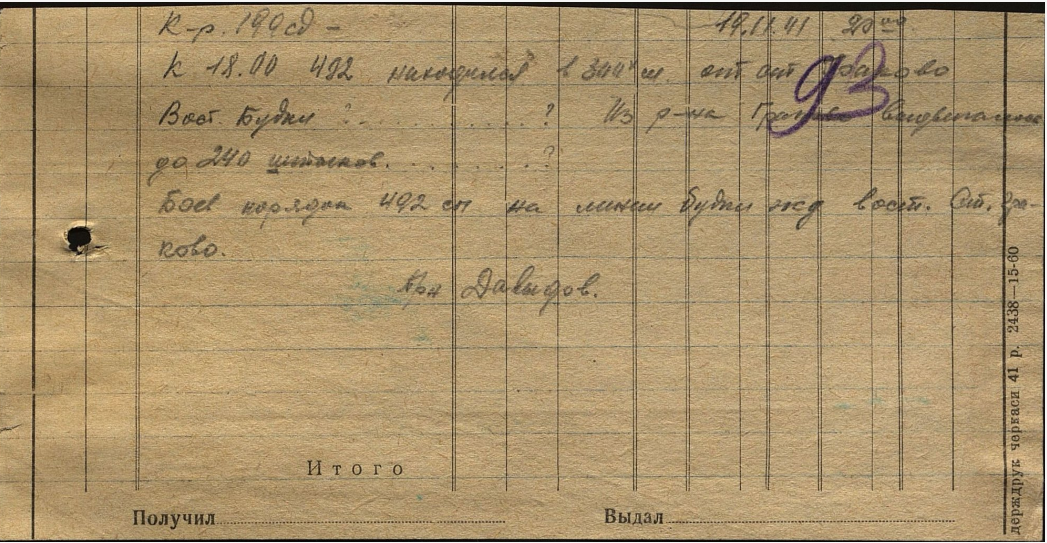 К-р. 199 сд – 19.11.41 20⁰⁰
К 18.00 492 находился в 300 м от ст Граково
Вост. Будки ? . . . . . . . . . . ? Из р-на Граково выдвигалось
до 240 штыков. . . . . . . . ?
93
Боев порядок 492 сп на линии будки жд вост. Ст. Гра-
ково.
Давыдов.
Итого
Получил
Выдал
держдрук черкаси 41 р. 2438—15-60